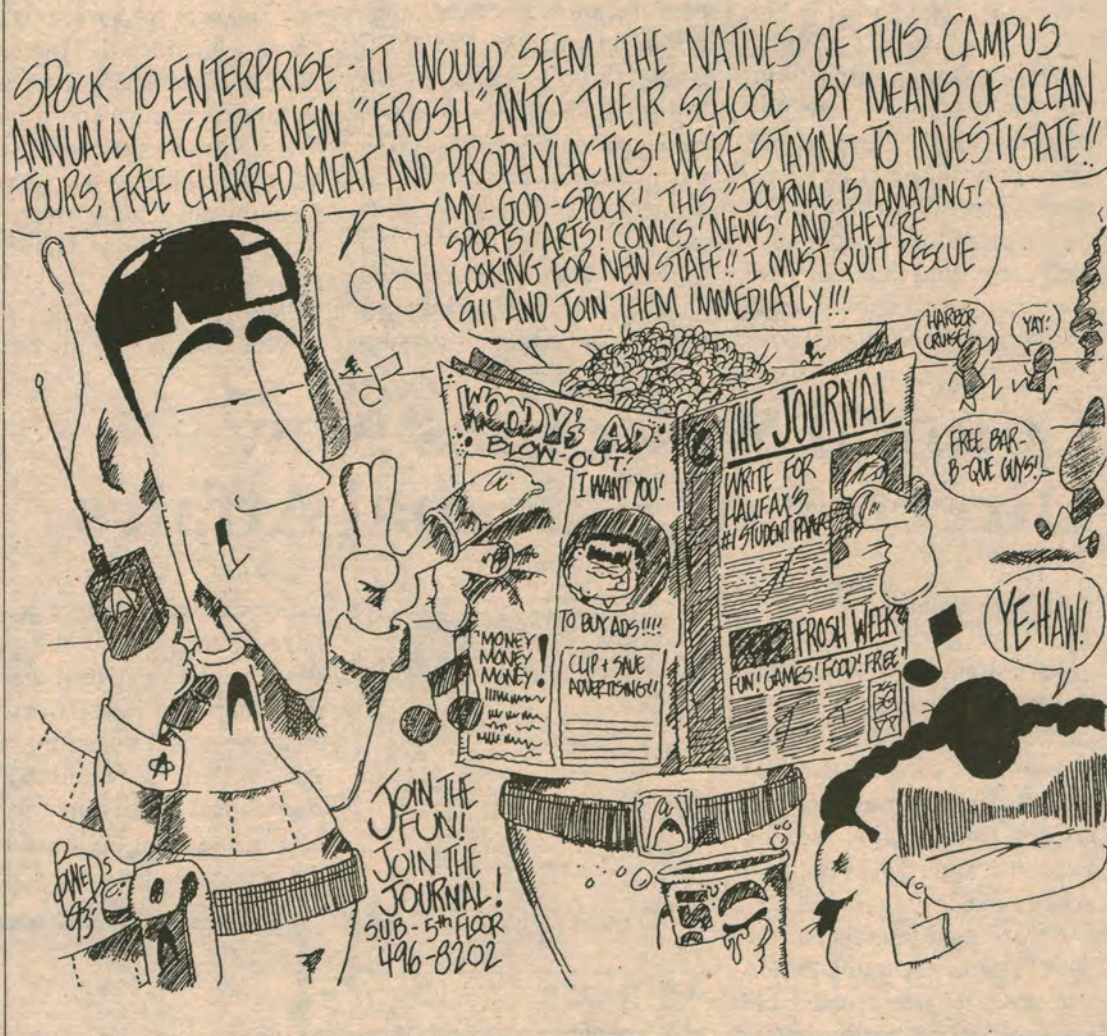 SPOCK TO ENTERPRISE - IT WOULD SEEM THE NATIVES OF THIS CAMPUS
ANNUALLY ACCEPT NEW "FROSH" INTO THEIR SCHOOL BY MEANS OF OCEAN
TOURS, FREE CHARRED MEAT AND PROPHYLACTICS! WE'RE STAYING TO INVESTIGATE!!
MY-GOD-SPOCK! THIS "JOURNAL IS AMAZING!
SPORTS! ARTS! COMICS! NEWS! AND THEY'RE
LOOKING FOR NEW STAFF!! I MUST QUIT RESCUE
911 AND JOIN THEM IMMEDIATLY!!!
HARBOR
CRUISE
YAY!
FREE BAR-
B-QUE GUYS!
YE-HAW!
WOODY'S AD
BLOW-OUT!
I WANT YOU!
TO BUY ADS!!!!
MONEY
MONEY
MONEY!
CLIP + SAVE
ADVERTISING!!
THE JOURNAL
WRITE FOR
HALIFAX'S
#1 STUDENT PAPER
FROSH WEEK
FUN! GAMES! FOOD! FREE
JOIN THE
FUN!
JOIN THE
JOURNAL!
SUB - 5th FLOOR
496-8202
93'